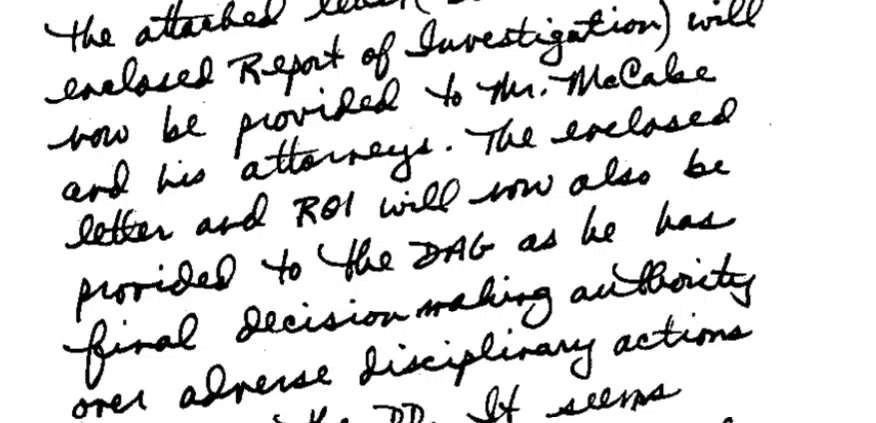 The attached letter (
enclosed Report of Investigation) will
now be provided to Mr. McCabe
and his attorneys. The enclosed
letter and ROI will now also be
provided to the DAG as he has
final decision making authority
over adverse disciplinary actions
the DD. It seems